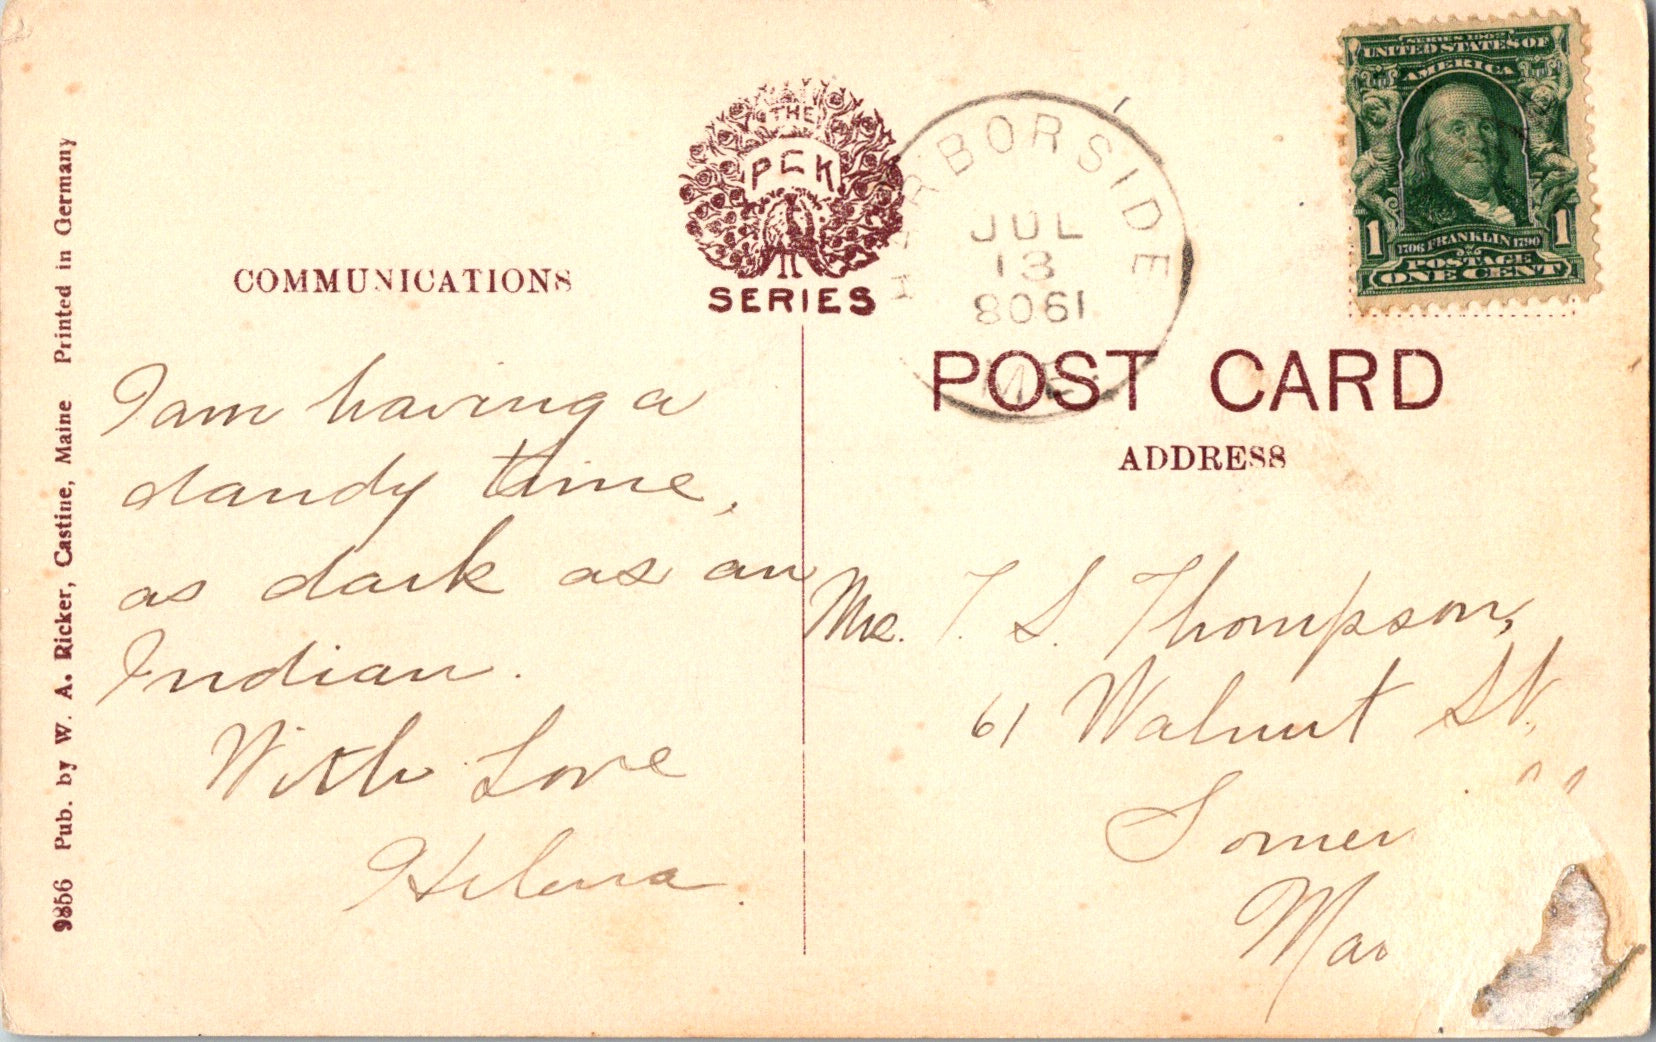 9856 Pub. by W. A. Ricker, Castine, Maine Printed in Germany
COMMUNICATIONS
THE
PCK
SERIES
HARBORSIDE
JUL
13
1908
ME.
SERIES 1902
UNITED STATES OF
AMERICA
1 1706 FRANKLIN 1790 1
POSTAGE
ONE CENT
POST CARD
ADDRESS
I am having a
dandy time,
as dark as an
Indian.
With Love
Helena.
T. S. Thompson,
61 Walnut St.
Somer
Mas